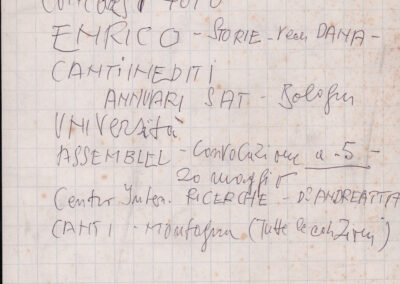 CONCORSI FOTO
ENRICO - STORIE - vedi DANA -
CANTI INEDITI
ANNUARI SAT - Bologna
UNIVERSITÀ
ASSEMBLEE - Convocazione a -5-
20 maggio
Centro Inter. RICERCHE - D'ANDREATTA
CANTI - Montagna (Tutte le canzoni)